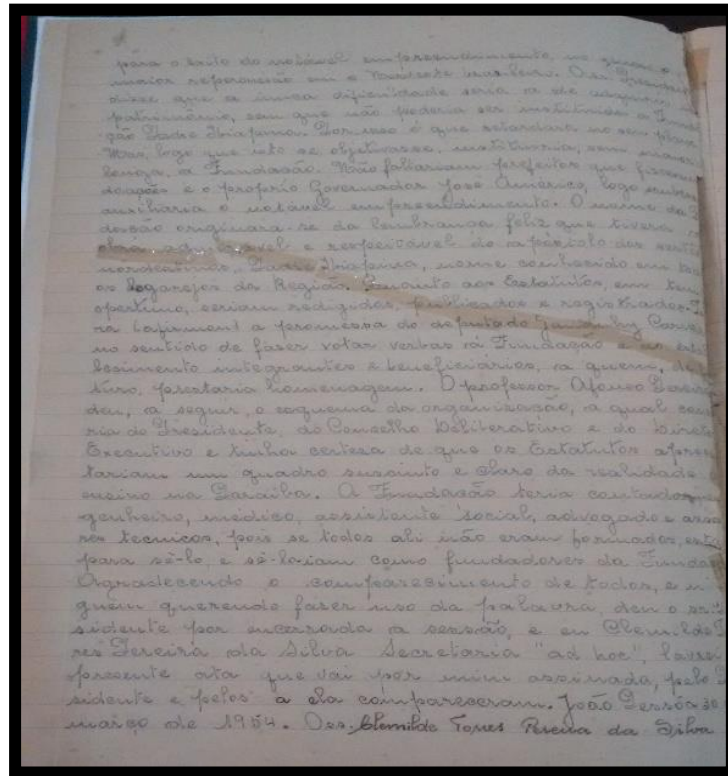 para o exito do notável empreendimento, no qual
maior repercussão em o Nordeste brasileiro. O sr. Presidente
disse que a unica dificuldade seria a de adquirir
patrimônio, sem que não poderia ser instituida a Funda
ção Padre Ibiapina. Por isso é que retardara no seu plano
Mas, logo que isto se objetivasse, instituiria, sem maior
a Fundação. Não faltariam prefeitos que fizessem
doações e o proprio Governador José Américo, logo
auxiliaria o notavel empreendimento. O nome da
dação originara-se da lembrança feliz que tivera
obra admiravel e respeitável do apóstolo dos sertões
nordestinos, Padre Ibiapina, nome conhecido em
os logarejos da Região. Quanto aos Estatutos, em tem
oportuno, seriam redigidos, publicados e registrados.
ra a promessa do deputado
no sentido de fazer votar verbas á Fundação e
lecimento integrantes e beneficiarios, a quem,
turo, prestaria homenagem. O professor Afonso Pereira
deu, a seguir, o esquema da organização, a qual cons
ria do Presidente, do Conselho Deliberativo e do Diretor
Executivo e tinha certeza de que os Estatutos apresen
tariam um quadro sucinto e claro da realidade
ensino na Paraiba. A Fundação teria contador,
genheiro, médico, assistente social, advogado e asses
res tecnicos, pois se todos ali não eram formados,
para sê-lo, e sê-loiam como fundadores da Funda
Agradecendo o comparecimento de todos, e n
guem querendo fazer uso da palavra, deu o sr
sidente por encerrada a sessão, e eu Clemilde
res Pereira da Silva Secretaria "ad hoc", lavrei
presente ata que vai por mim assinada, pelo
sidente e pelos a ela compareceram. João Pessôa 30
março de 1954. Clemilde Torres Pereira da Silva